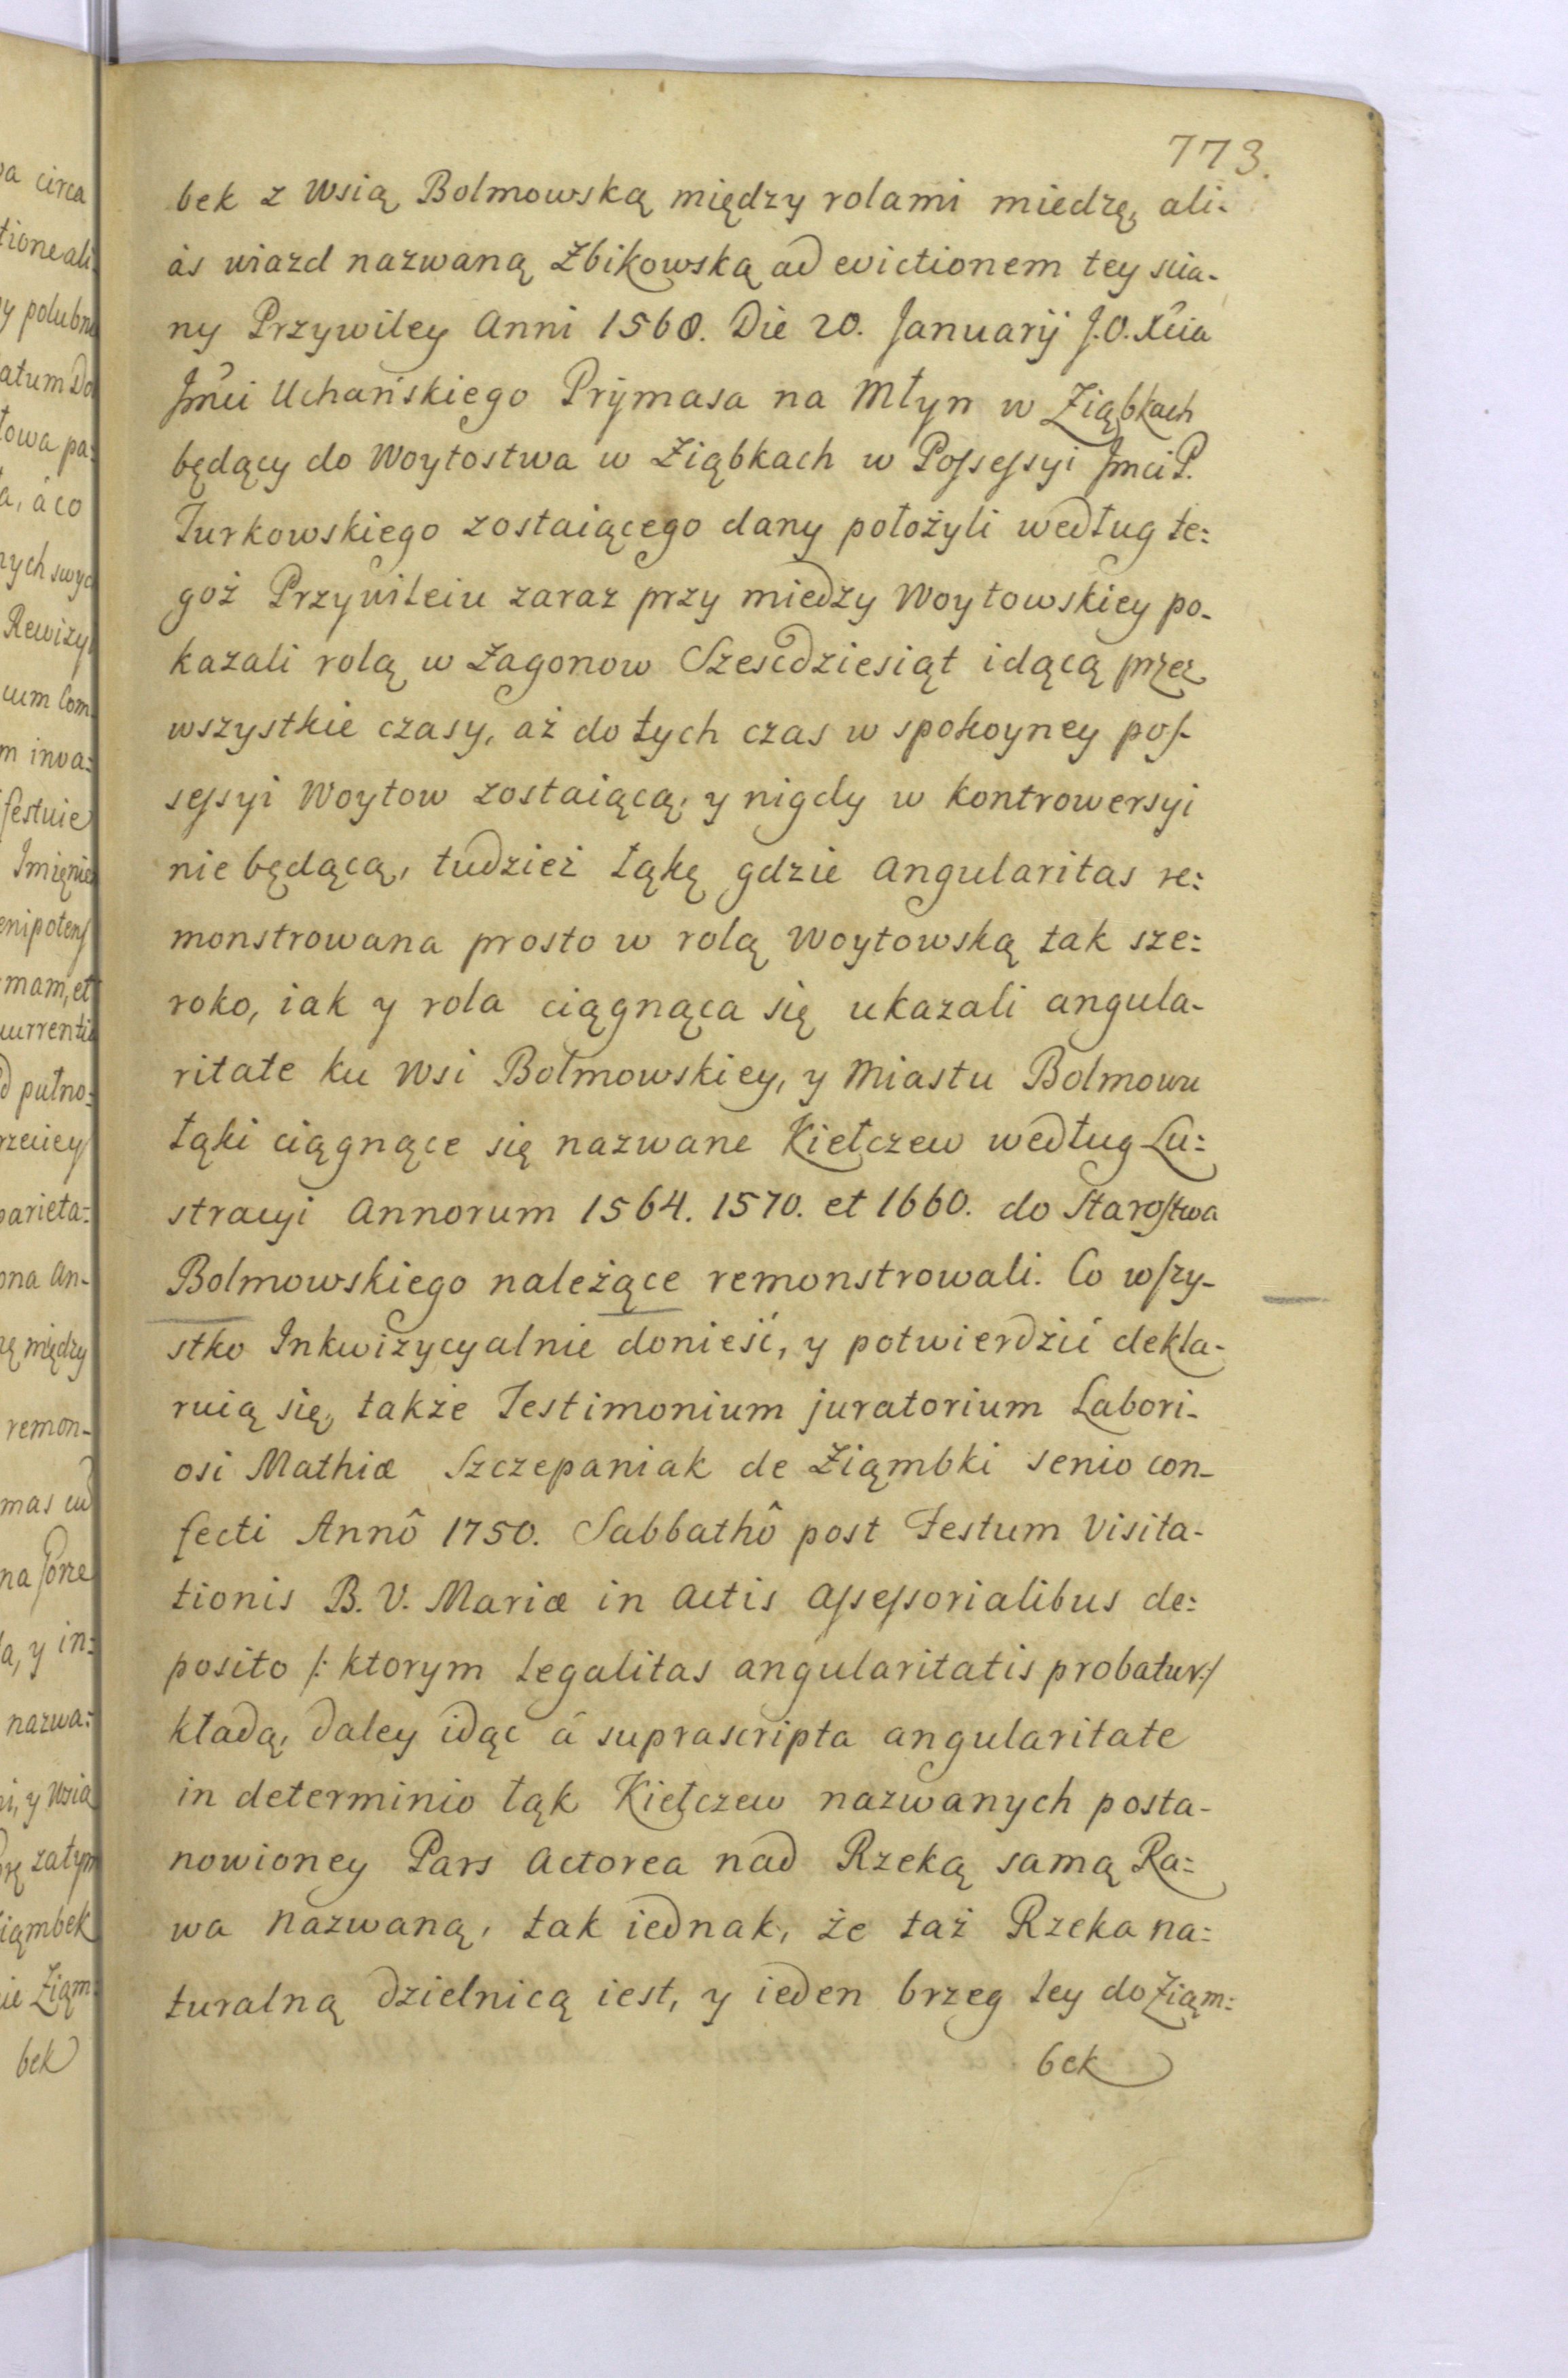 773.
bek z Wsią Bolmowską między rolami miedzę, ali-
às wiazd nazwaną Zbikowską ad evictionem tey scia-
ny Przywiley Anni 1568. Die 20. Januarij J.O. Xcia
Jmci Uchańskiego Prymasa na Młyn w Ziąbkach
będący do Woytostwa w Ziąbkach w Possessyi Jmci P.
Turkowskiego zostaiącego dany położyli według te:
goż Przywileiu zaraz przy miedzy Woytowskiey po-
kazali rolą w Zagonow Szescdziesiąt idącą przez
wszystkie czasy, aż do tych czas w spokoyney pos-
sessyi Woytow zostaiącą, y nigdy w kontrowersyi
nie będącą, tudzież łąkę gdzie Angularitas re:
monstrowana prosto w rolą Woytowską tak sze:
roko, iak y rola ciągnąca się ukazali angula-
ritate ku Wsi Bolmowskiey, y Miastu Bolmowu
łąki ciągnące się nazwane Kiełczew według Lu:
stracyi Annorum 1564. 1570. et 1660. do Starostwa
Bolmowskiego należące remonstrowali. Co wszy-
stko Inkwizycyalnie donieść, y potwierdzić dekla-
ruią się, także Testimonium juratorium Labori-
osi Mathiæ Szczepaniak de Ziąmbki senio con-
fecti Annô 1750. Sabbathô post Festum Visita-
tionis B. V. Mariæ in Actis Assessorialibus de:
posito /: ktorym legalitas angularitatis probatur:/
kładą, daley idąc á suprascripta angularitate
in determinio łąk Kiełczew nazwanych posta-
nowioney Pars Actorea nad Rzeką samą Ra:
wa nazwaną, tak iednak, że taż Rzeka na:
turalną dzielnicą iest, y ieden brzeg tey do Ziąm:
bek